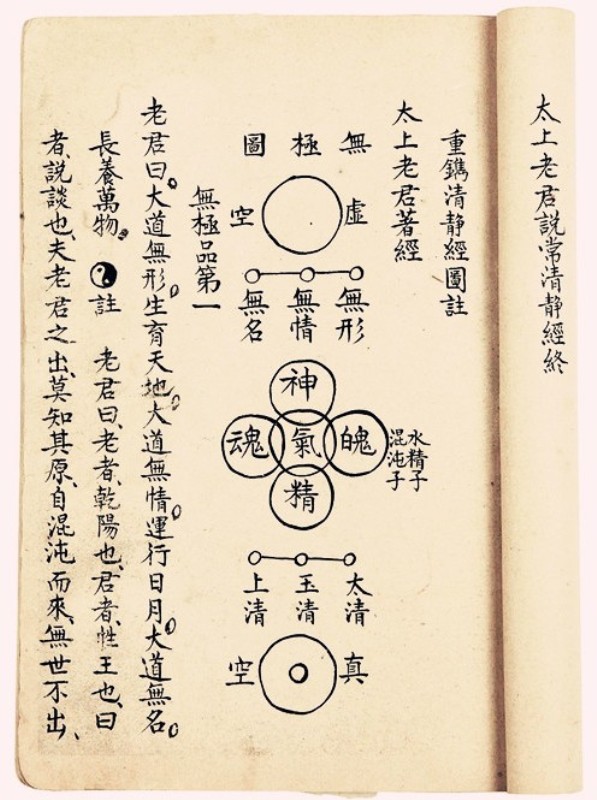 太上老君說常清靜經終
重鐫清靜經圖註
太上老君著經
水精子
混沌子
無極圖
虛空
無形
無情
無名
神
魄氣魂
精
太清
玉清
上清
真空
無極品第一
老君曰。大道無形。生育天地。大道無情。運行日月。大道無名。
長養萬物。☯註 老君曰、老者、乾陽也、君者、性王也、曰
者、說談也、夫老君之出、莫知其原、自混沌而來、無世不出、